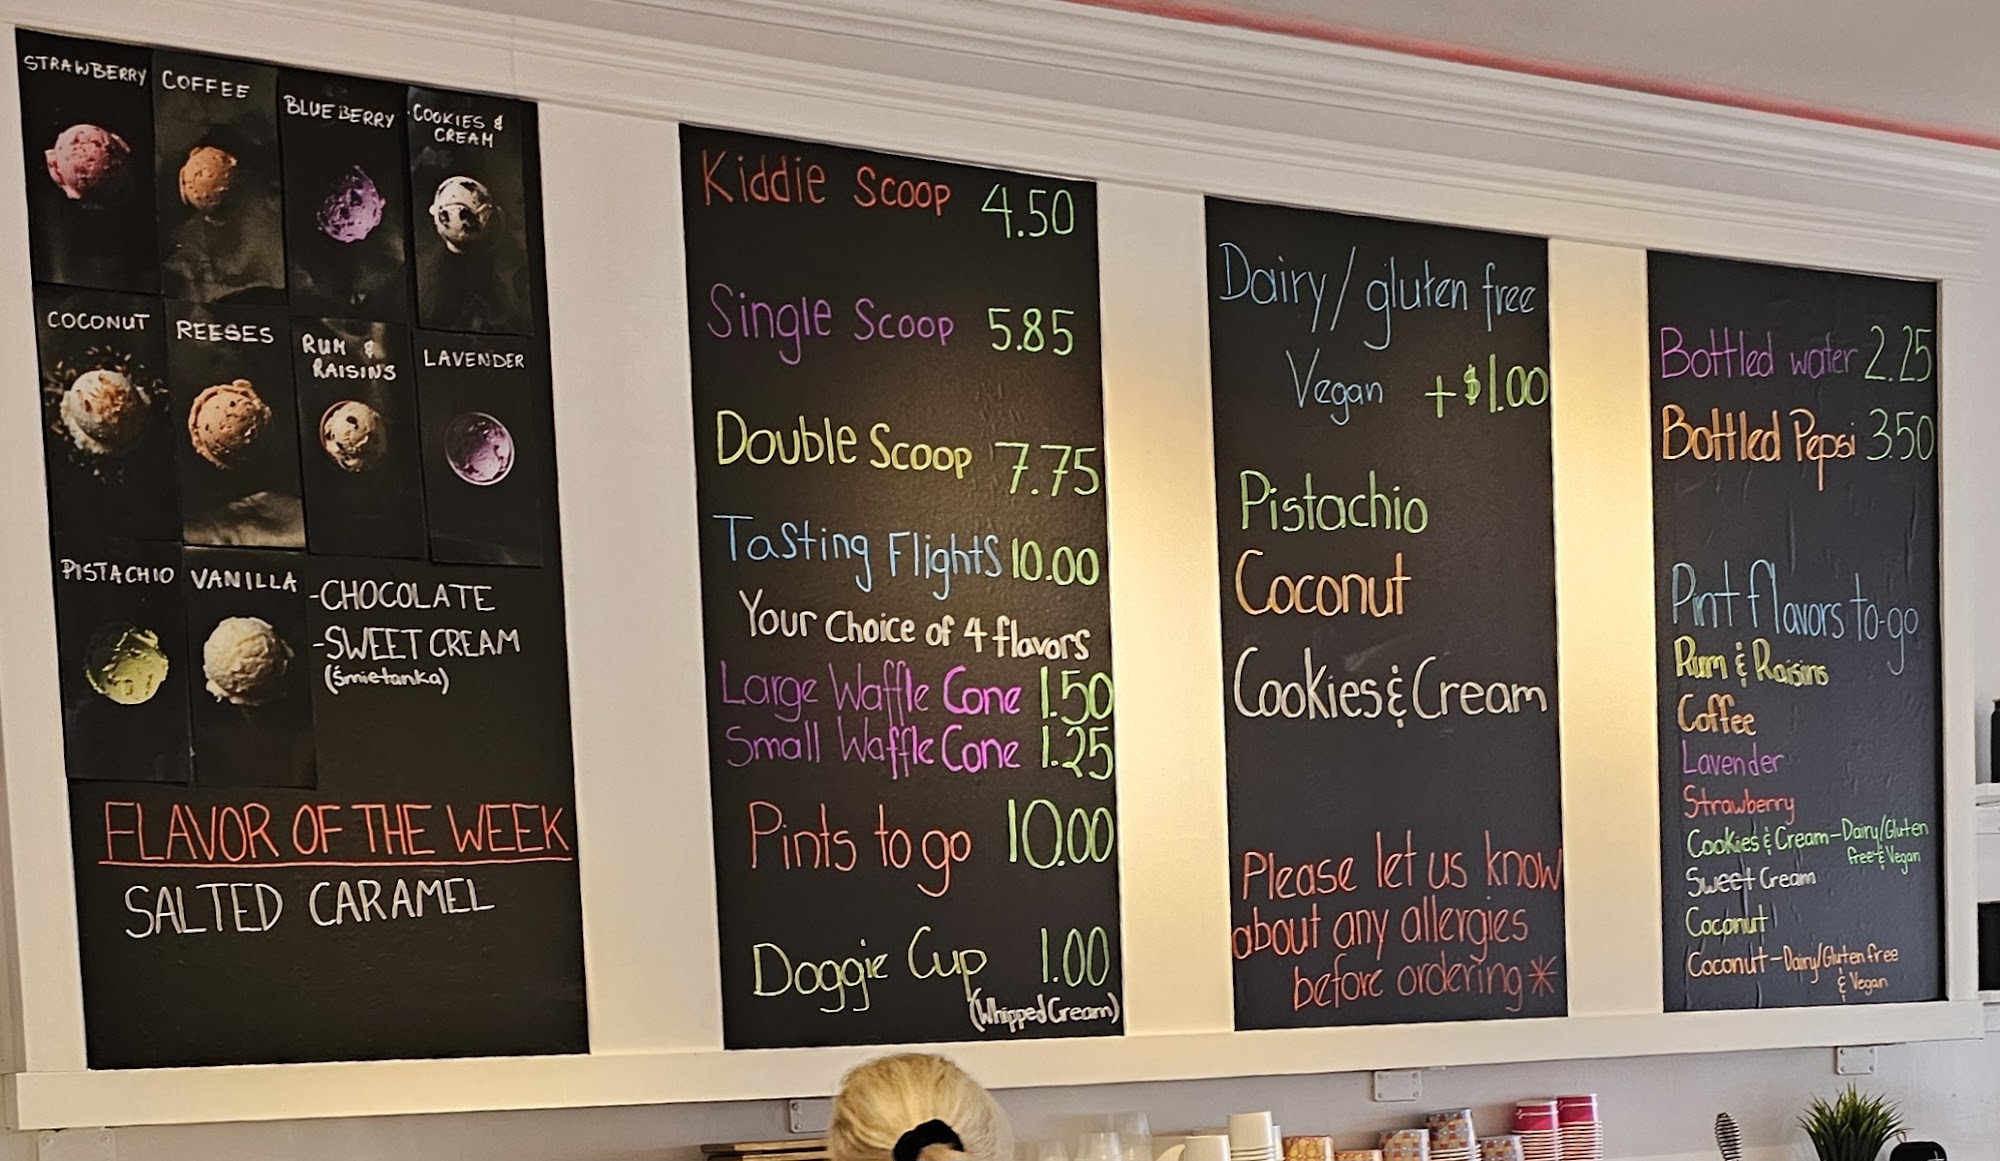 STRAWBERRY
COFFEE
BLUEBERRY
COOKIES &
CREAM
COCONUT
REESES
RUM &
RAISINS
LAVENDER
PISTACHIO
VANILLA
-CHOCOLATE
-SWEET CREAM
(śmietanka)
FLAVOR OF THE WEEK
SALTED CARAMEL
Kiddie Scoop 4.50
Single Scoop 5.85
Double Scoop 7.75
Tasting Flights 10.00
Your choice of 4 flavors
Large Waffle Cone 1.50
Small Waffle Cone 1.25
Pints to go 10.00
Doggie Cup 1.00
(Whipped Cream)
Dairy/gluten free
Vegan +$1.00
Pistachio
Coconut
Cookies & Cream
Please let us know
about any allergies
before ordering*
Bottled water 2.25
Bottled Pepsi 3.50
Pint flavors to-go
Rum & Raisins
Coffee
Lavender
Strawberry
Cookies & Cream-Dairy/Gluten
free & Vegan
Sweet Cream
Coconut
Coconut-Dairy/Gluten free
& Vegan